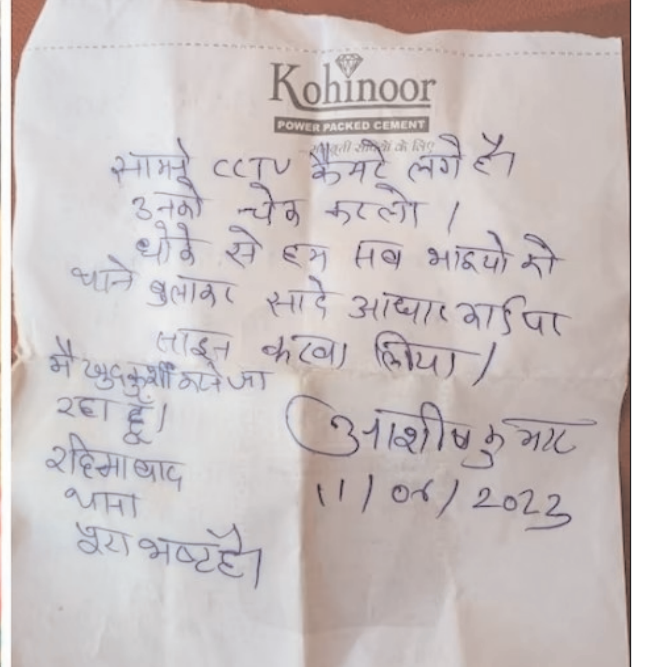 Kohinoor
POWER PACKED CEMENT
के लिए
सामने CCTV कैमरे लगे है।
उनको चेक करलो।
धोके से हम सब भाइयो को
थाने बुलाकर सादे आधार कार्ड पर
साइन करवा लिया।
मै खुदकुशी करने जा
रहा हूँ।
रहिमाबाद
थाना
पूरा भष्ट है।
आशीष कुमार
11/06/2023